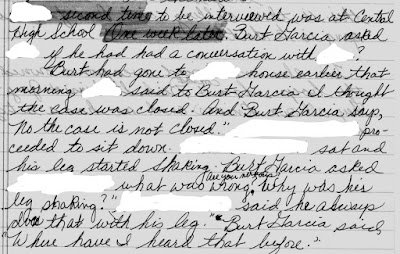 second time to be interviewed was at Central
High School. One week later. Burt Garcia asked
if he had had a conversation with ?
"Burt had gone to house earlier that
morning. said to Burt Garcia I thought
the case was closed. And Burt Garcia say,
"No the case is not closed." pro-
ceeded to sit down. sat and
his leg started shaking. Burt Garcia asked
what was wrong, "are you nervous" Why was her
leg shaking?" said he always
does that with his leg." Burt Garcia said,
"Where have I heard that before."